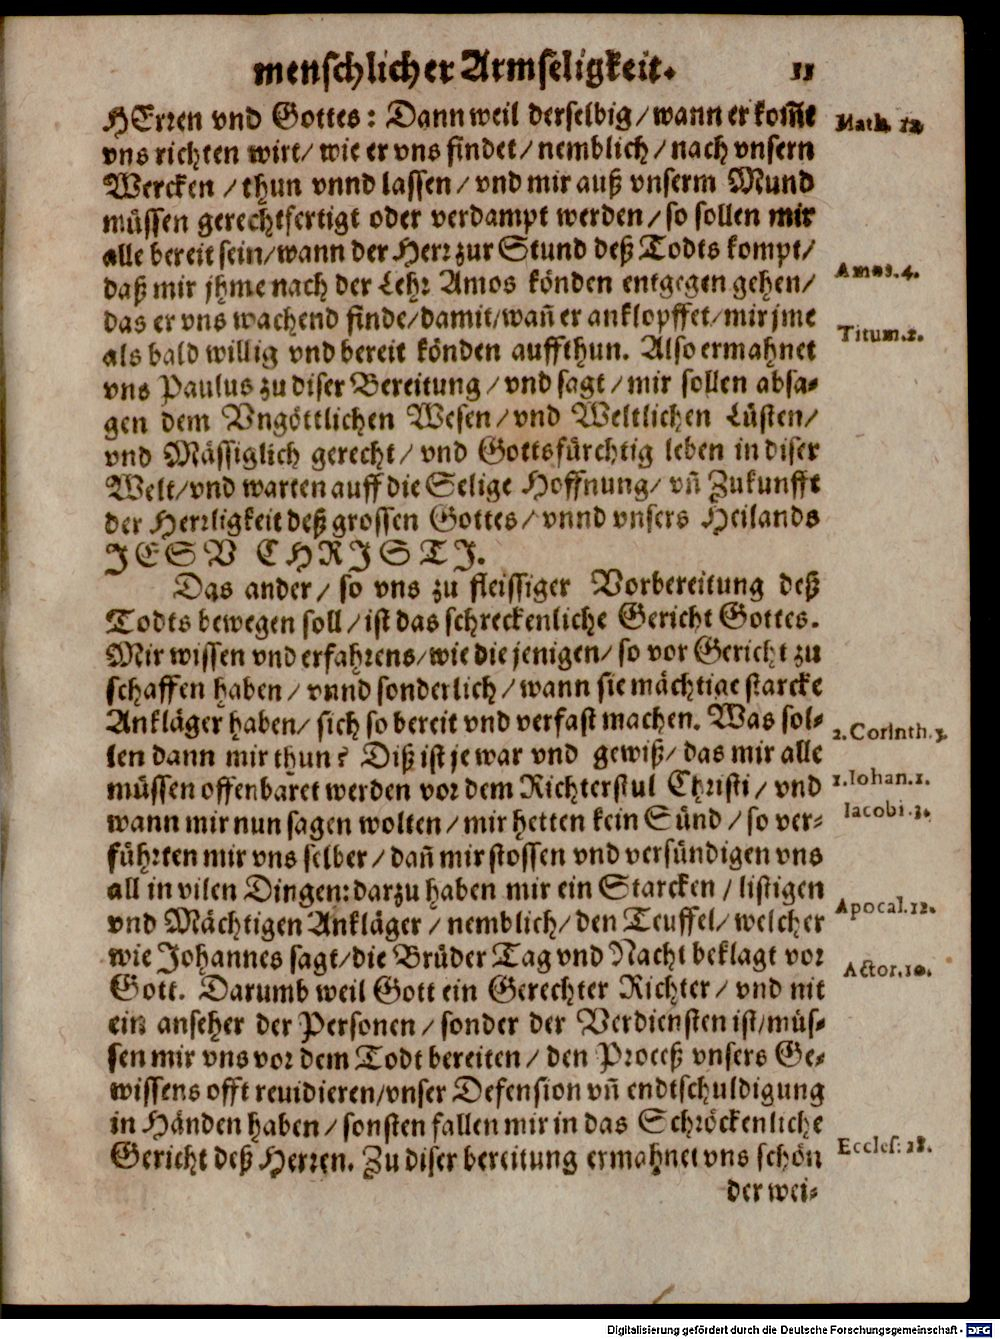 menschlicher Armseligkeit. 11
HErren vnd Gottes: Dann weil derselbig/ wann er kom̃t
Math. 12.
vns richten wirt/ wie er vns findet/ nemblich/ nach vnsern
Wercken / thun vnnd lassen/ vnd mir auß vnserm Mund
müssen gerechtfertigt oder verdampt werden/ so sollen mir
alle bereit sein/ wann der Herr zur Stund deß Todts kompt/
Amos. 4.
daß mir jhme nach der Lehr Amos könden entgegen gehen/
das er vns wachend finde/ damit/ wañ er anklopffet/ mir jme
Titum. 2.
als bald willig vnd bereit könden auffthun. Also ermahnet
vns Paulus zu diser Bereitung/ vnd sagt/ mir sollen absa-
gen dem Vngöttlichen Wesen/ vnd Weltlichen Lüsten/
vnd Mässiglich gerecht/ vnd Gottsfürchtig leben in diser
Welt/ vnd warten auff die Selige Hoffnung/ vñ Zukunfft
der Herrligkeit deß grossen Gottes/ vnnd vnsers Heilands
JESV CHRISTJ.
Das ander/ so vns zu fleissiger Vorbereitung deß
Todts bewegen soll/ ist das schreckenliche Gericht Gottes.
Mir wissen vnd erfahrens/ wie die jenigen/ so vor Gericht zu
schaffen haben/ vnnd sonderlich/ wann sie mächtige starcke
Ankläger haben/ sich so bereit vnd verfast machen. Was sol-
2. Corinth. 5.
len dann mir thun? Diß ist je war vnd gewiß/ das mir alle
müssen offenbaret werden vor dem Richterstul Christi/ vnd
1. Iohan. 1.
wann mir nun sagen wolten/ mir hetten kein Sünd/ so ver-
Iacobi. 3.
führten mir vns selber/ dañ mir stossen vnd versündigen vns
all in vilen Dingen: darzu haben mir ein Starcken/ listigen
vnd Mächtigen Ankläger/ nemblich/ den Teuffel/ welcher
Apocal. 12.
wie Johannes sagt/ die Brüder Tag vnd Nacht beklagt vor
Actor. 10.
Gott. Darumb weil Gott ein Gerechter Richter/ vnd nit
ein anseher der Personen/ sonder der Verdiensten ist/ müs-
sen mir vns vor dem Todt bereiten/ den Proceß vnsers Ge-
wissens offt reuidieren/ vnser Defension vñ endtschuldigung
in Händen haben/ sonsten fallen mir in das Schröckenliche
Gericht deß Herren. Zu diser bereitung ermahnet vns schön
Eccles. 18.
der wei-
Digitalisierung gefördert durch die Deutsche Forschungsgemeinschaft - DFG